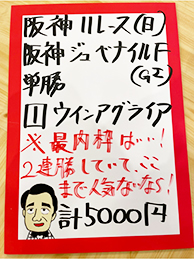 阪神11レース(日)
阪神ジュベナイルF
単勝(GⅠ)
1 ウインアグライア
※最内枠ばい!
2連勝していて、ここ
まで人気ないなら!
計5000円